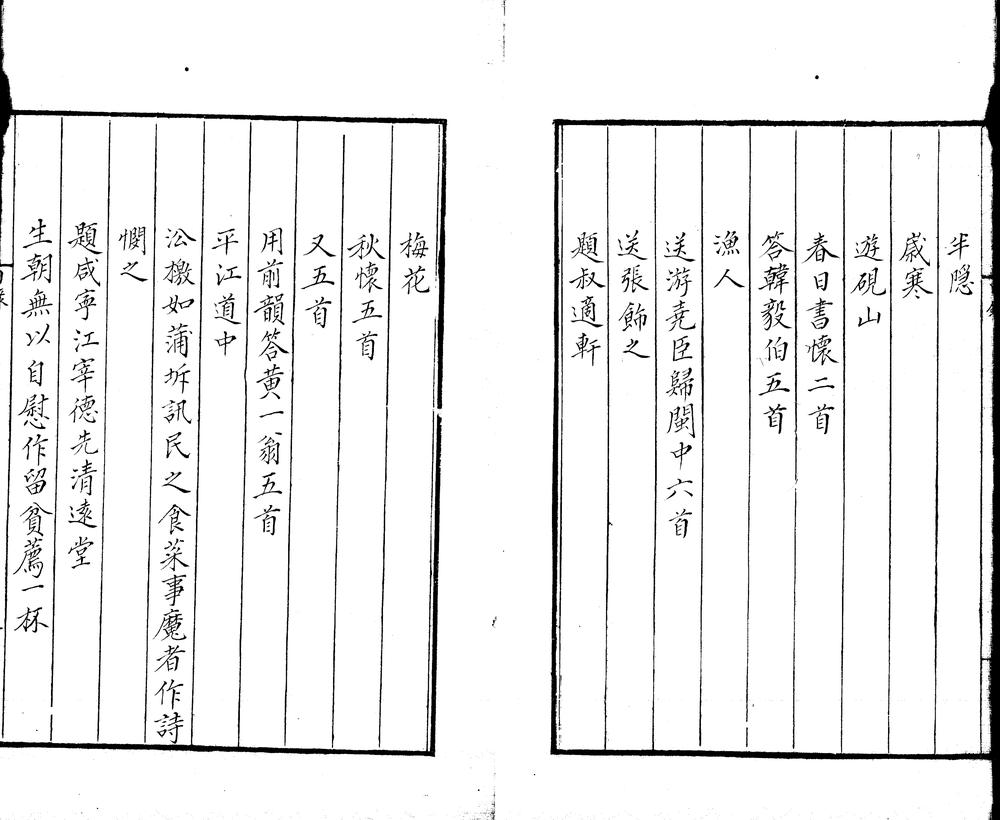 半隠
歲寒
遊硯山
春日書懷二首
答韓毅伯五首
漁人
送游堯臣歸閩中六首
送張飾之
題叔適軒
梅花
秋懷五首
又五首
用前韻答黃一翁五首
平江道中
沿檄如蒲圻訊民之食菜事魔者作詩
憫之
題咸寧江宰德先清遠堂
生朝無以自慰作留貧薦一杯